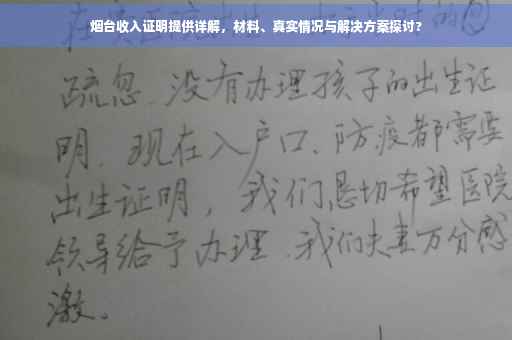 烟台收入证明提供详解，材料、真实情况与解决方案探讨？
疏忽、没有办理孩子的出生证
明．现在入户口、防疫都需要
出生证明，我们恳切希望医院
领导给予办理．我们夫妻万分感
激。